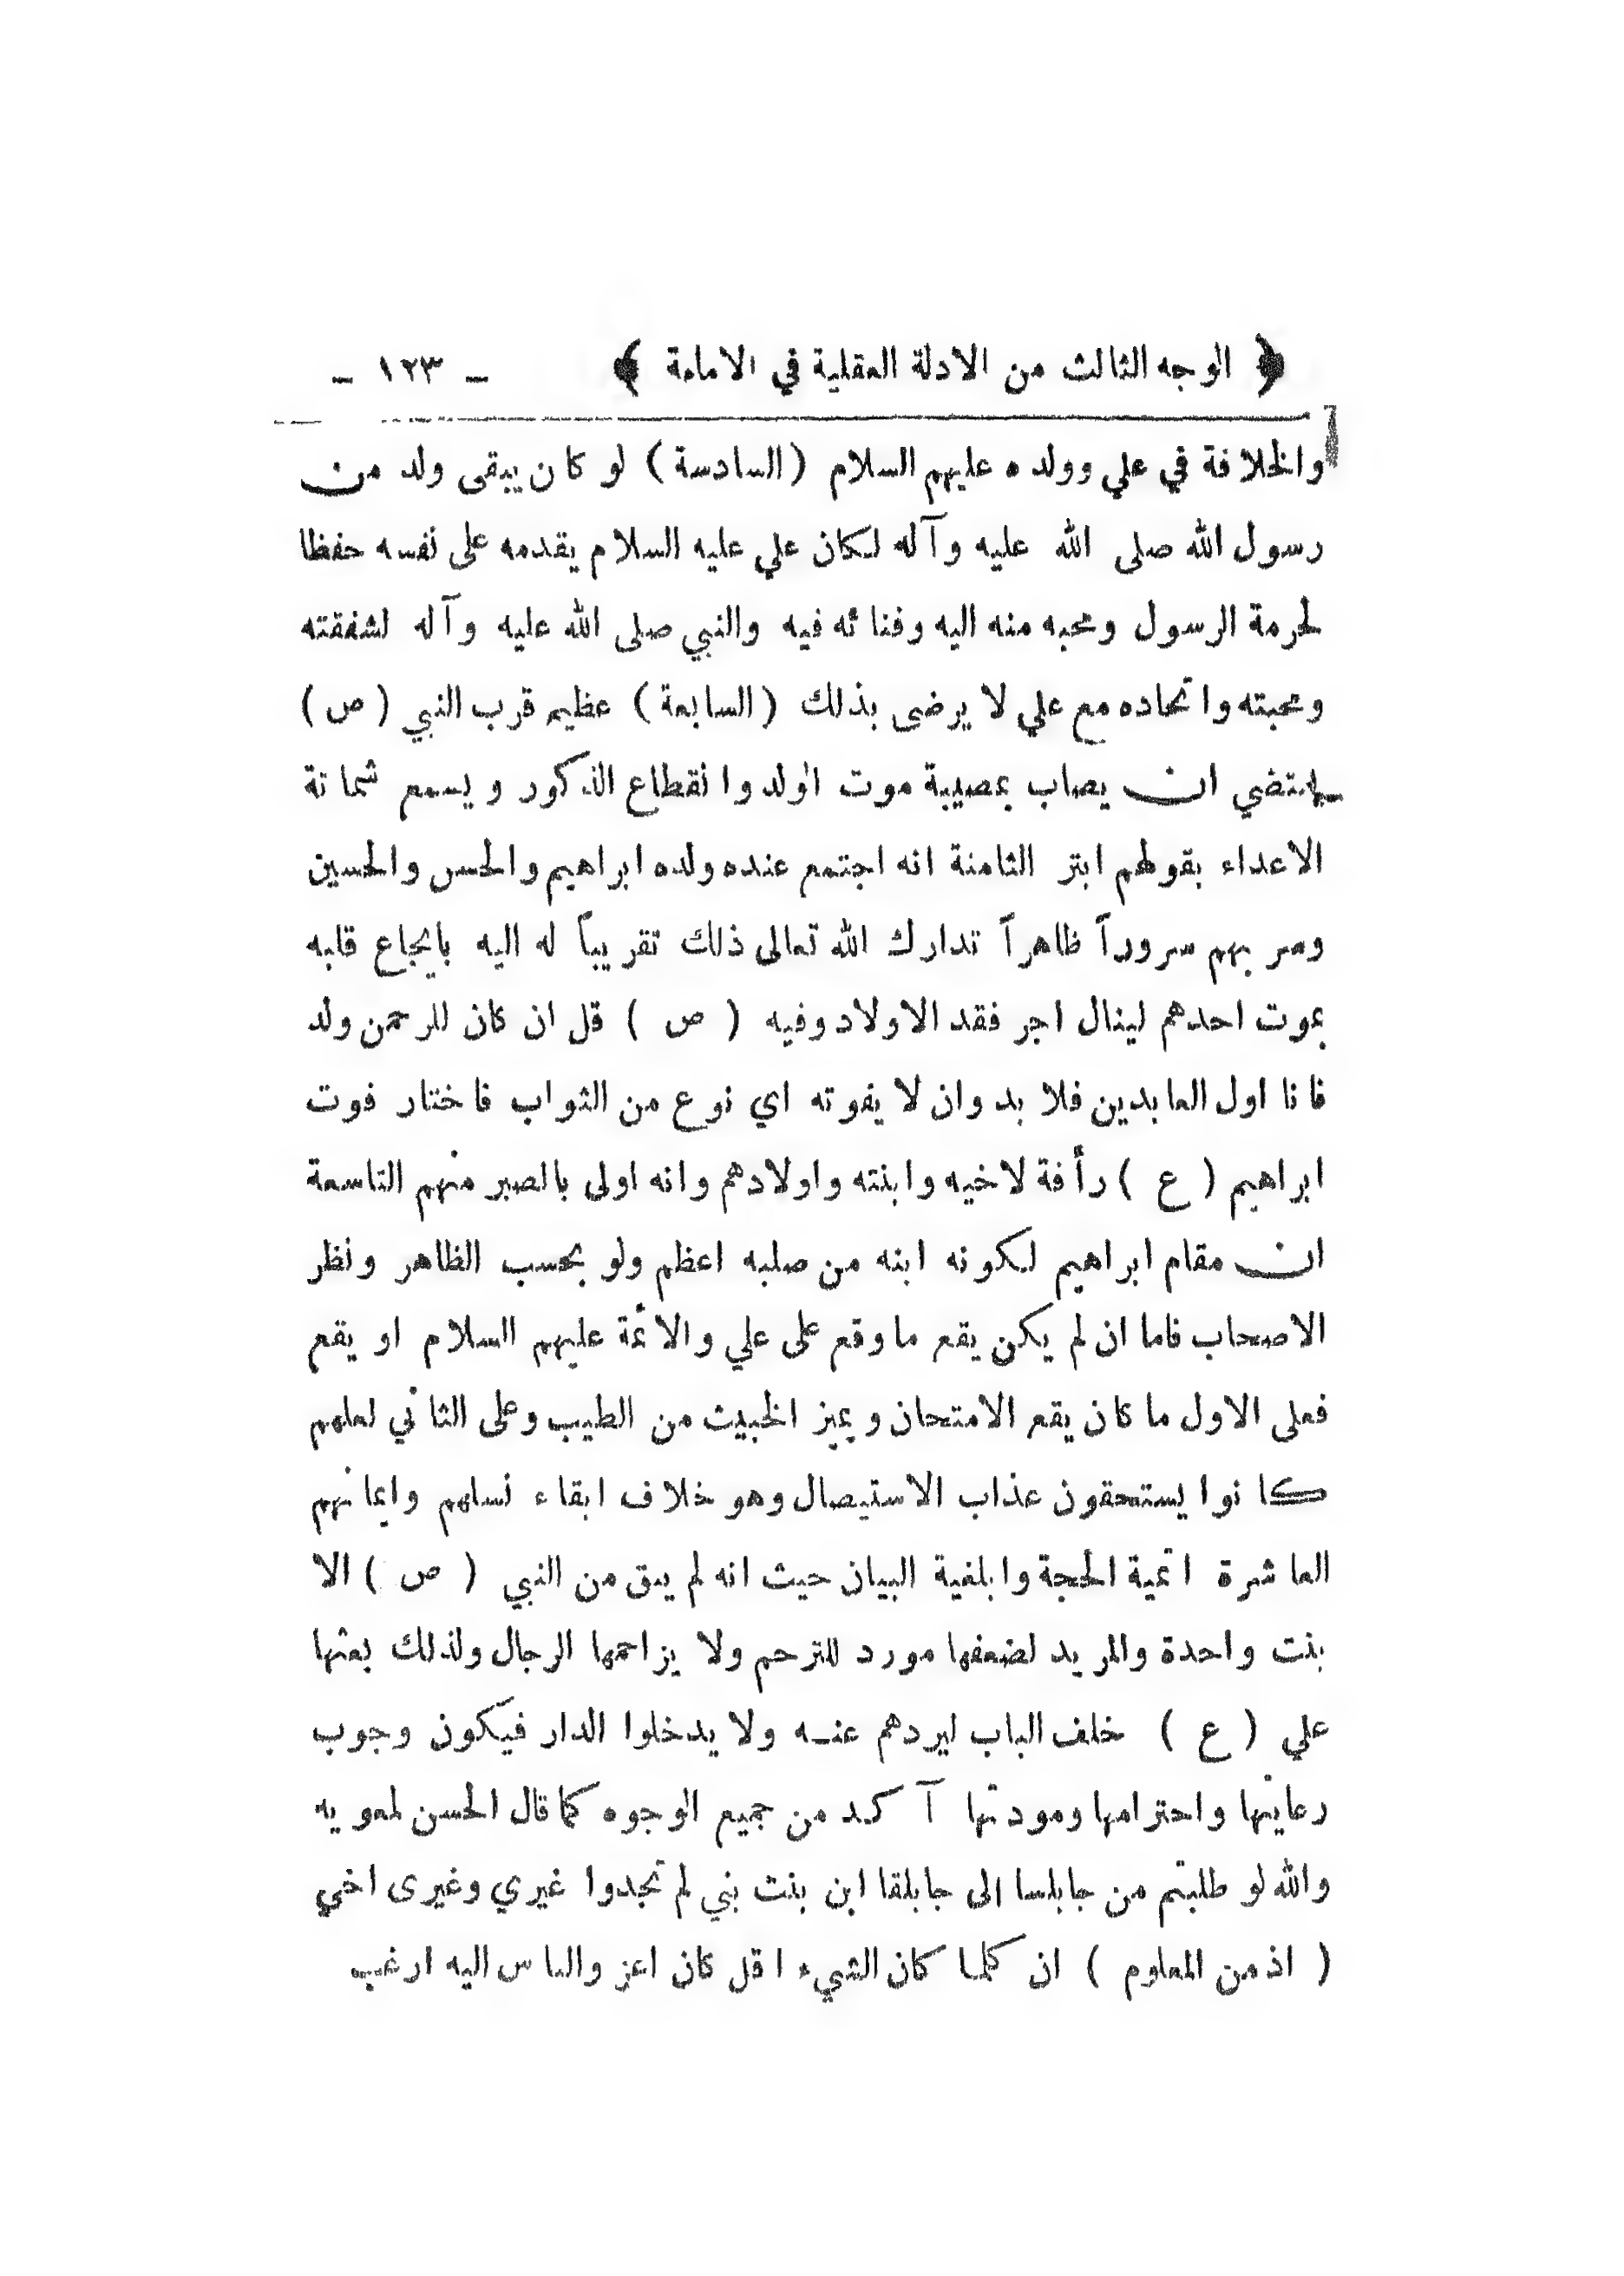 ﴿ الوجه الثالث من الادلة العقلية في الامامة ﴾ ـ ١٢٣ ـ
والخلافة في علي وولده عليهم السلام (السادسة) لو كان يبقى ولد من
رسول الله صلى الله عليه وآله لكان علي عليه السلام يقدمه على نفسه حفظا
لحرمة الرسول ومحبه منه اليه وفنائه فيه والنبي صلى الله عليه وآله لشفقته
ومحبته واتحاده مع علي لا يرضى بذلك (السابعة) عظيم قرب النبي (ص)
يقتضي ان يصاب بمصيبة موت الولد وانقطاع الذكور ويسمع شماتة
الاعداء بقولهم ابتر الثامنة انه اجتمع عنده ولده ابراهيم والحسن والحسين
وسر بهم سروراً ظاهراً تدارك الله تعالى ذلك تقريباً له اليه بايجاع قلبه
بموت احدهم لينال اجر فقد الاولاد وفيه ( ص ) قل ان كان للرحمن ولد
فانا اول العابدين فلا بد وان لا يفوته اي نوع من الثواب فاختار فوت
ابراهيم ( ع ) رأفة لاخيه وابنته واولادهم وانه اولى بالصبر منهم التاسعة
ان مقام ابراهيم لكونه ابنه من صلبه اعظم ولو بحسب الظاهر ونظر
الاصحاب فاما ان لم يكن يقع ما وقع على علي والائمة عليهم السلام او يقع
فعلى الاول ما كان يقع الامتحان ويميز الخبيث من الطيب وعلى الثاني لعلهم
كانوا يستحقون عذاب الاستيصال وهو خلاف ابقاء نسلهم وايمانهم
العاشرة اتمية الحجة وابلغية البيان حيث انه لم يبق من النبي ( ص ) الا
بنت واحدة والمريد لضعفها مورد للترحم ولا يزاحمها الرجال ولذلك بعثها
علي ( ع ) خلف الباب ليردهم عنه ولا يدخلوا الدار فيكون وجوب
رعايتها واحترامها ومودتها آكد من جميع الوجوه كما قال الحسن لمعويه
والله لو طلبتم من جابلسا الى جابلقا ابن بنت نبي لم تجدوا غيري وغيرى اخي
( اذ من المعلوم ) ان كلما كان الشيء اقل كان اعز والناس اليه ارغب